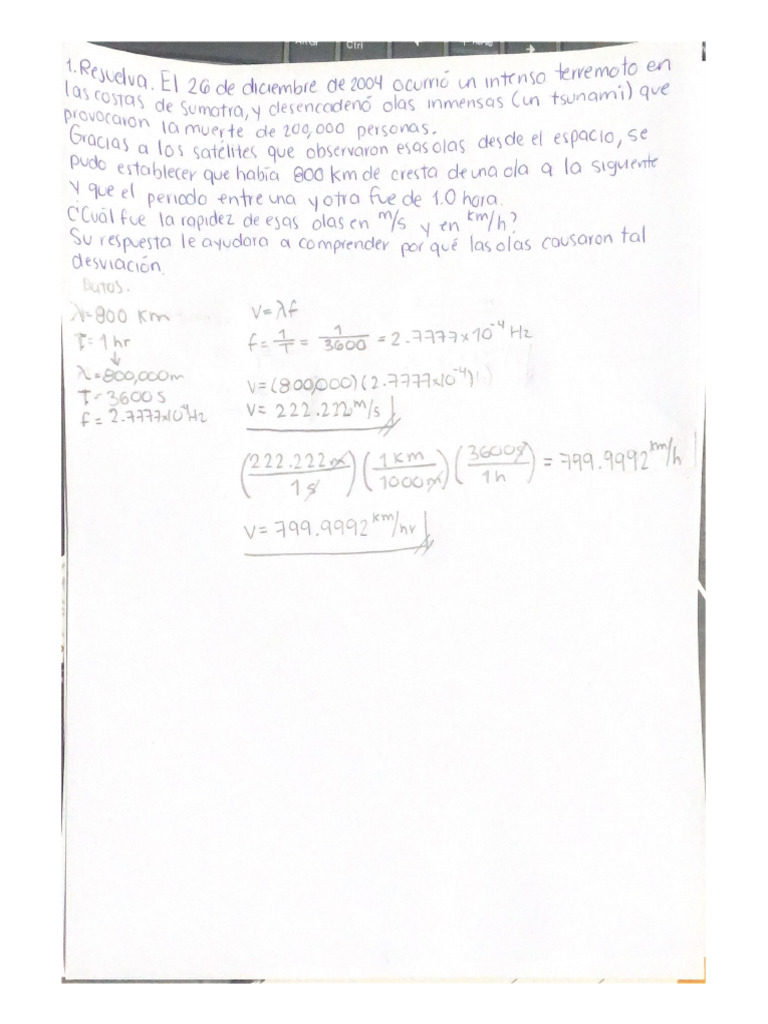 Ctrl
1. Resuelva. El 26 de diciembre de 2004 ocurrió un intenso terremoto en
las costas de Sumatra, y desencadenó olas inmensas (un tsunami) que
provocaron la muerte de 200,000 personas.
Gracias a los satélites que observaron esas olas desde el espacio, se
pudo establecer que había 800 km de cresta de una ola a la siguiente
y que el periodo entre una y otra fue de 1.0 hora.
¿Cuál fue la rapidez de esas olas en m/s y en km/h?
Su respuesta le ayudara a comprender por qué las olas causaron tal
desviación.
Datos.
λ=800 Km
T=1hr
↓
λ=800,000m
T=3600s
f=2.7777x10⁻⁴Hz
V=λf
f=1/T=1/3600=2.7777x10⁻⁴Hz
V=(800,000)(2.7777x10⁻⁴)
V= 222.222m/s
(222.222m/1s)(1km/1000m)(3600s/1h)=799.9992km/h
V=799.9992km/hr